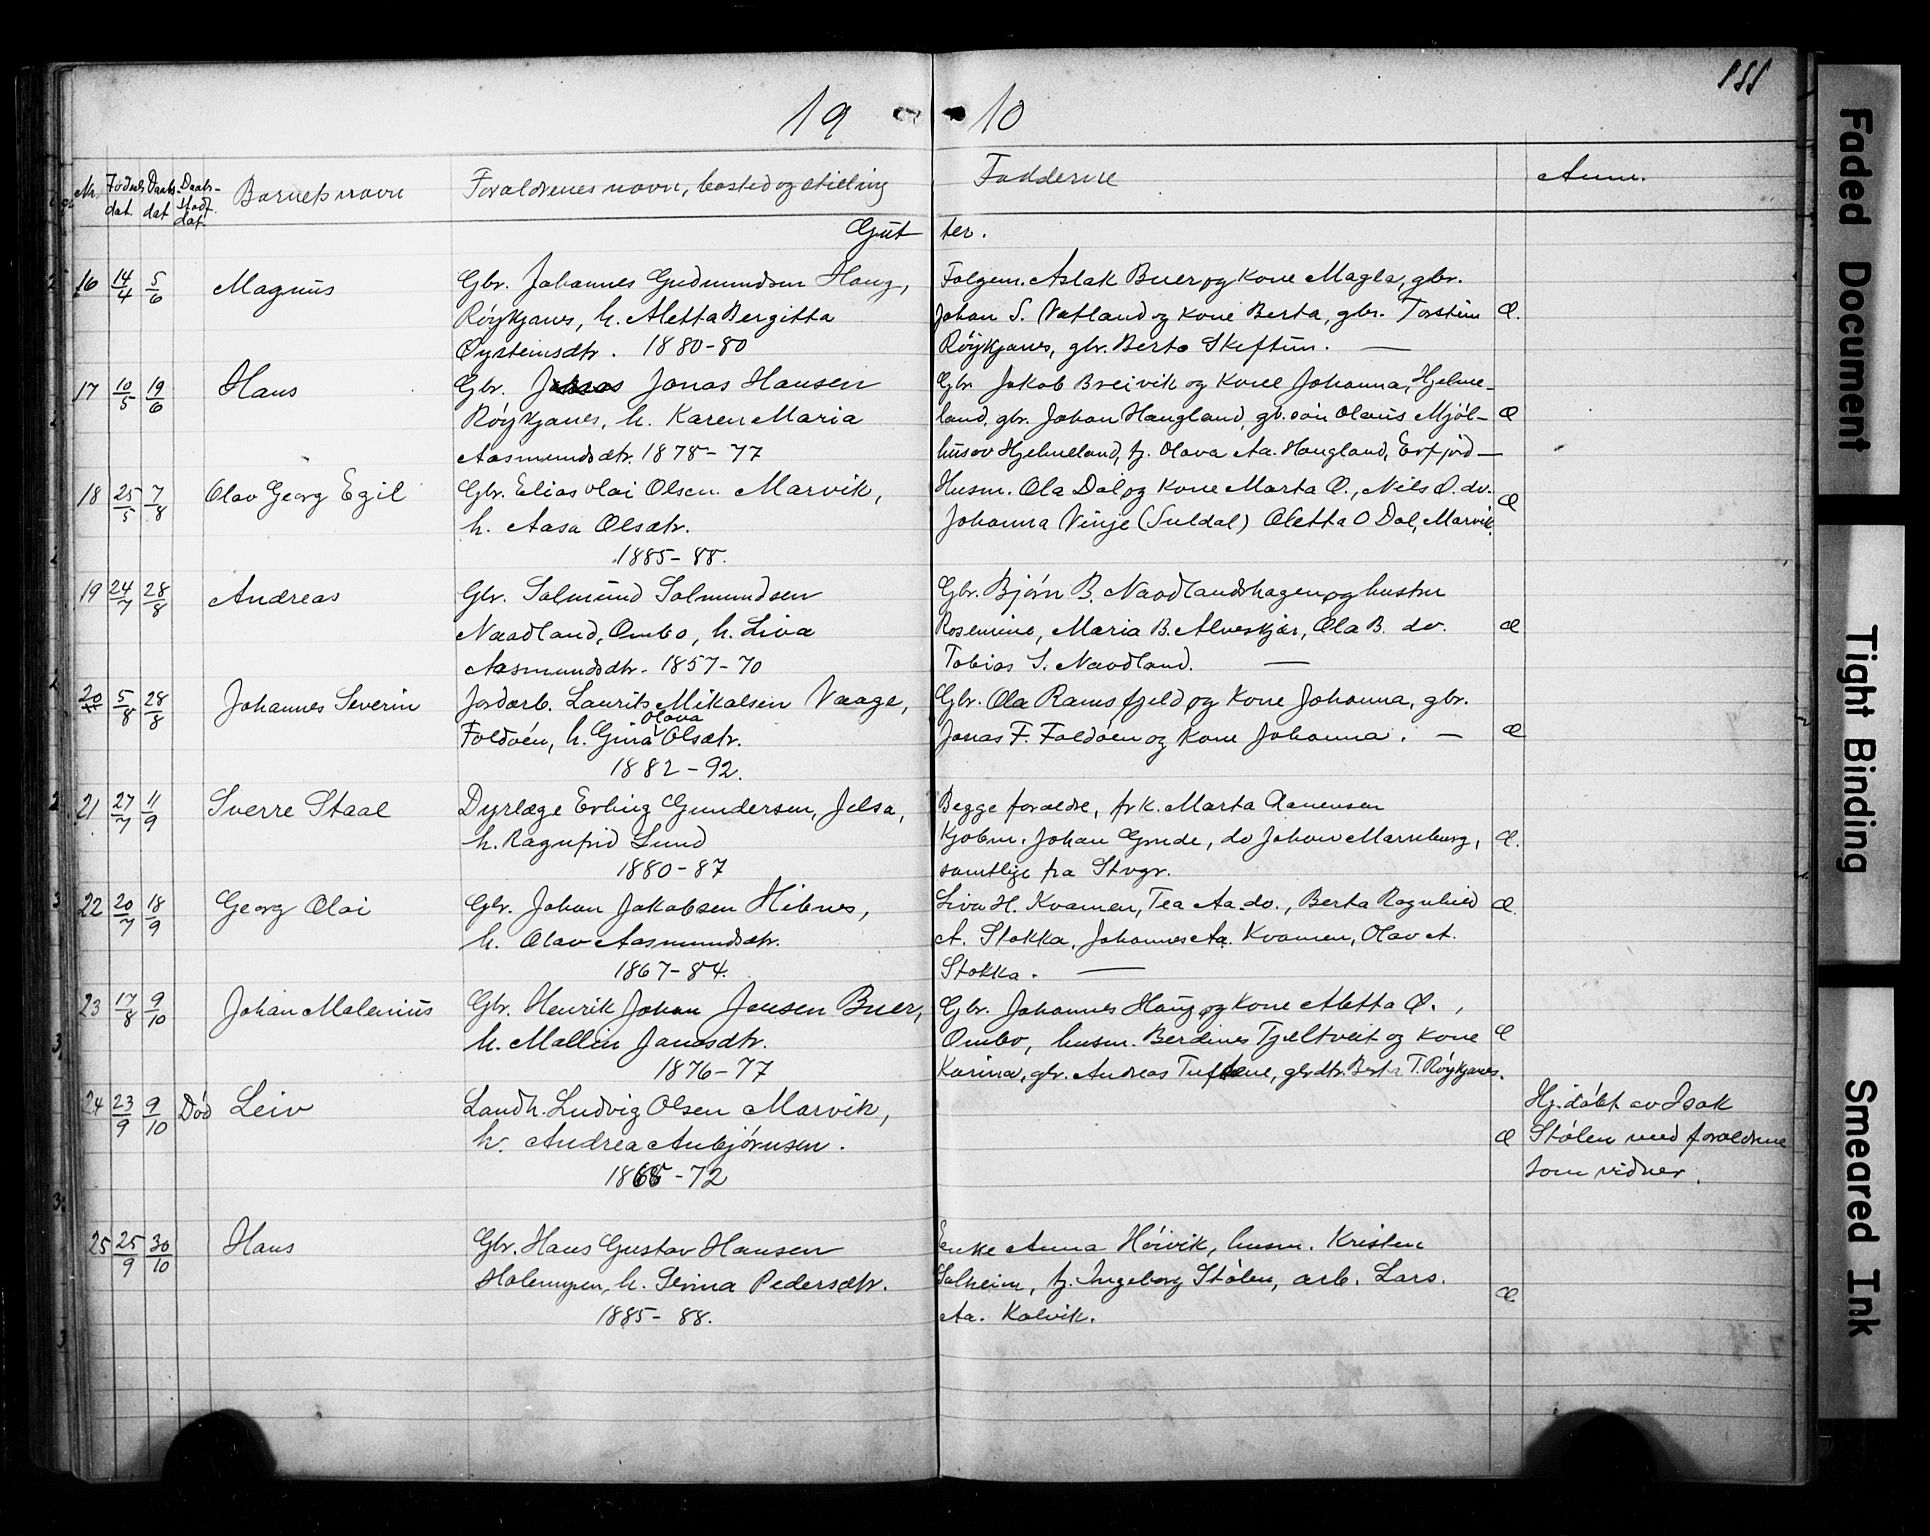 111
19 10
Nr. Fødsels dat. Daabs dat Daabs- stadf. dat. Barnets navn Forældrenes navn, bosted og stilling Fadderne Anm.
Gut ter.
16 14/4 5/6 Magnus Gbr. Johannes Gudmundsen Haug, Folgem. Aslak Buer og Kone Magla, gbr.
Røykjanes, h. Aletta Bergitta Johan S. Vatland og Kone Berta, gbr. Torstein Æ.
Øysteinsdtr. 1880-80 Røykjanes, gbr. Berta Skeftun. —
17 10/5 19/6 Hans Gbr. Jonas Hansen Gbr. Jakob Breivik og Kone Johanna, Hjelme-
Røykjanes, h. Karen Maria land, gbr. Johan Haugland, gb. søn Olaus Mjøl- Æ
Aasmundsdtr. 1878-77 husav Hjelmeland, tj. Olava Aa. Haugland, Erfjord —
18 25/5 7/8 Olav Georg Egil Gbr. Elias Olai Olsen Marvik, Husm. Ola Dal og Kone Marta O., Nils O. do. Æ
h. Aasa Olsdtr. Johanna Vinje (Suldal) Oletta O Dal, Marvik.
1885-88.
19 24/7 28/8 Andreas Gbr. Salmund Salmundsen Gbr. Bjørn B. Naadlandshagen og hustru
Naadland, Ombo, h. Liva Rosemine, Maria B. Alveskjær, Ola B. do. Æ
Aasmundsdtr. 1857-70 Tobias S. Naadland. —
20 5/8 28/8 Johannes Severin Jordarb. Laurits Mikalsen Vaage, Gbr. Ola Ramsfjeld og Kone Johanna, gbr.
Foldøen, h. Gina Olava Olsdtr. Jonas F. Foldøen og Kone Johanna. — Æ
1882-92.
21 27/7 11/9 Sverre Staal Dyrlæge Erling Gundersen, Jelsa, Begge forældre, frk. Marta Aanensen
h. Ragnfrid Lund Kjøbm. Johan Grude, do Johan Marneburg, Æ.
1880-87 samtlige fra Stvgr.
22 20/7 18/9 Georg Olai Gbr. Johan Jakobsen Hibnes, Liva H. Kvamen, Tea Aa. do., Berta Ragnhild Æ.
h. Olav Aasmundsdtr. A. Stokka, Johannes Aa. Kvamen, Olav A.
1867-84. Stokka. —
23 17/8 9/10 Johan Malenius Gbr. Henrik Johan Jensen Buer, Gbr. Johannes Haug og Kone Aletta Ø.,
h. Mallin Jansdtr. Ombo, husm. Berdines Tjeltveit og Kone Æ
1876-77 Karina, gbr. Andreas Tuftene, gbrdtr. Berta T. Røykjanes.
24 23/9 9/10 Død Leiv Landh. Ludvig Olsen Marvik, Hj. døbt av Isak
h. Andrea Anbjørnsen. Æ Stølen med forældrene
1868-72 som vidner.
25 25/9 30/10 Hans Gbr. Hans Gustav Hansen Enke Anna Høivik, husm. Kristen
Halemyren, h. Serina Pedersdtr. Solheim, tj. Ingeborg Stølen, arb. Lars. Æ
1885-88. Aa. Kalvik.
Faded Document
Tight Binding
Smeared Ink